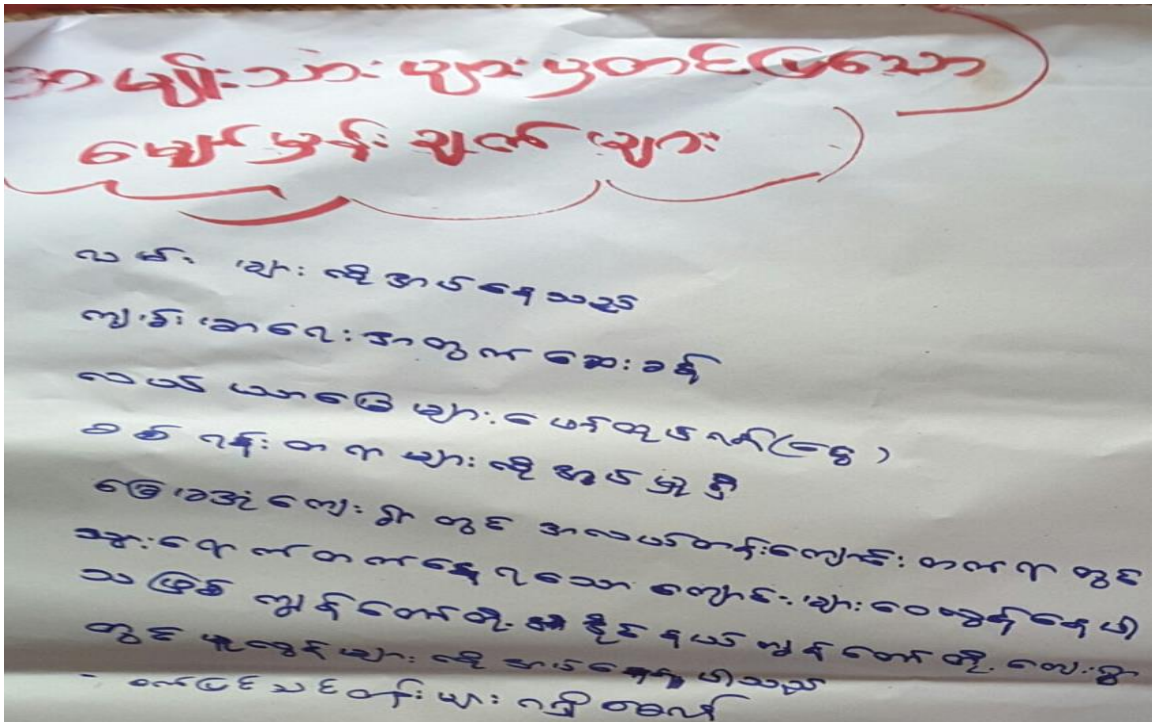 အမျိုးသားများမှတင်ပြသော
မျှော်မှန်းချက်များ
လမ်းများလိုအပ်နေသည်
ကျန်းမာရေးအတွက်ဆေးခန်း
လယ်ယာမြေများဖော်ထုတ်ရက်(ငွေ)
စစ်ရန်းတကာများလိုအပ်မှုရှိ
မြေခအုံကျေးရွာတွင်အလယ်တန်းကျောင်းတက်ရာတွင်
သွားရောက်တက်နေရသောကျောင်းများဝေလွန်နေပါ
သဖြင့်ကျွန်တော်တို့နိုင်နယ်ကျွန်တော်တို့ကျေးရွာ
တွင်မူလွန်များလိုအပ်နေပါသည်
- စက်ပြင်သင်တန်းများရရှိစေလို